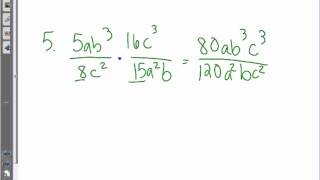 5. 5ab³/8c² · 16c³/15a²b = 80ab³c³/120a²bc²